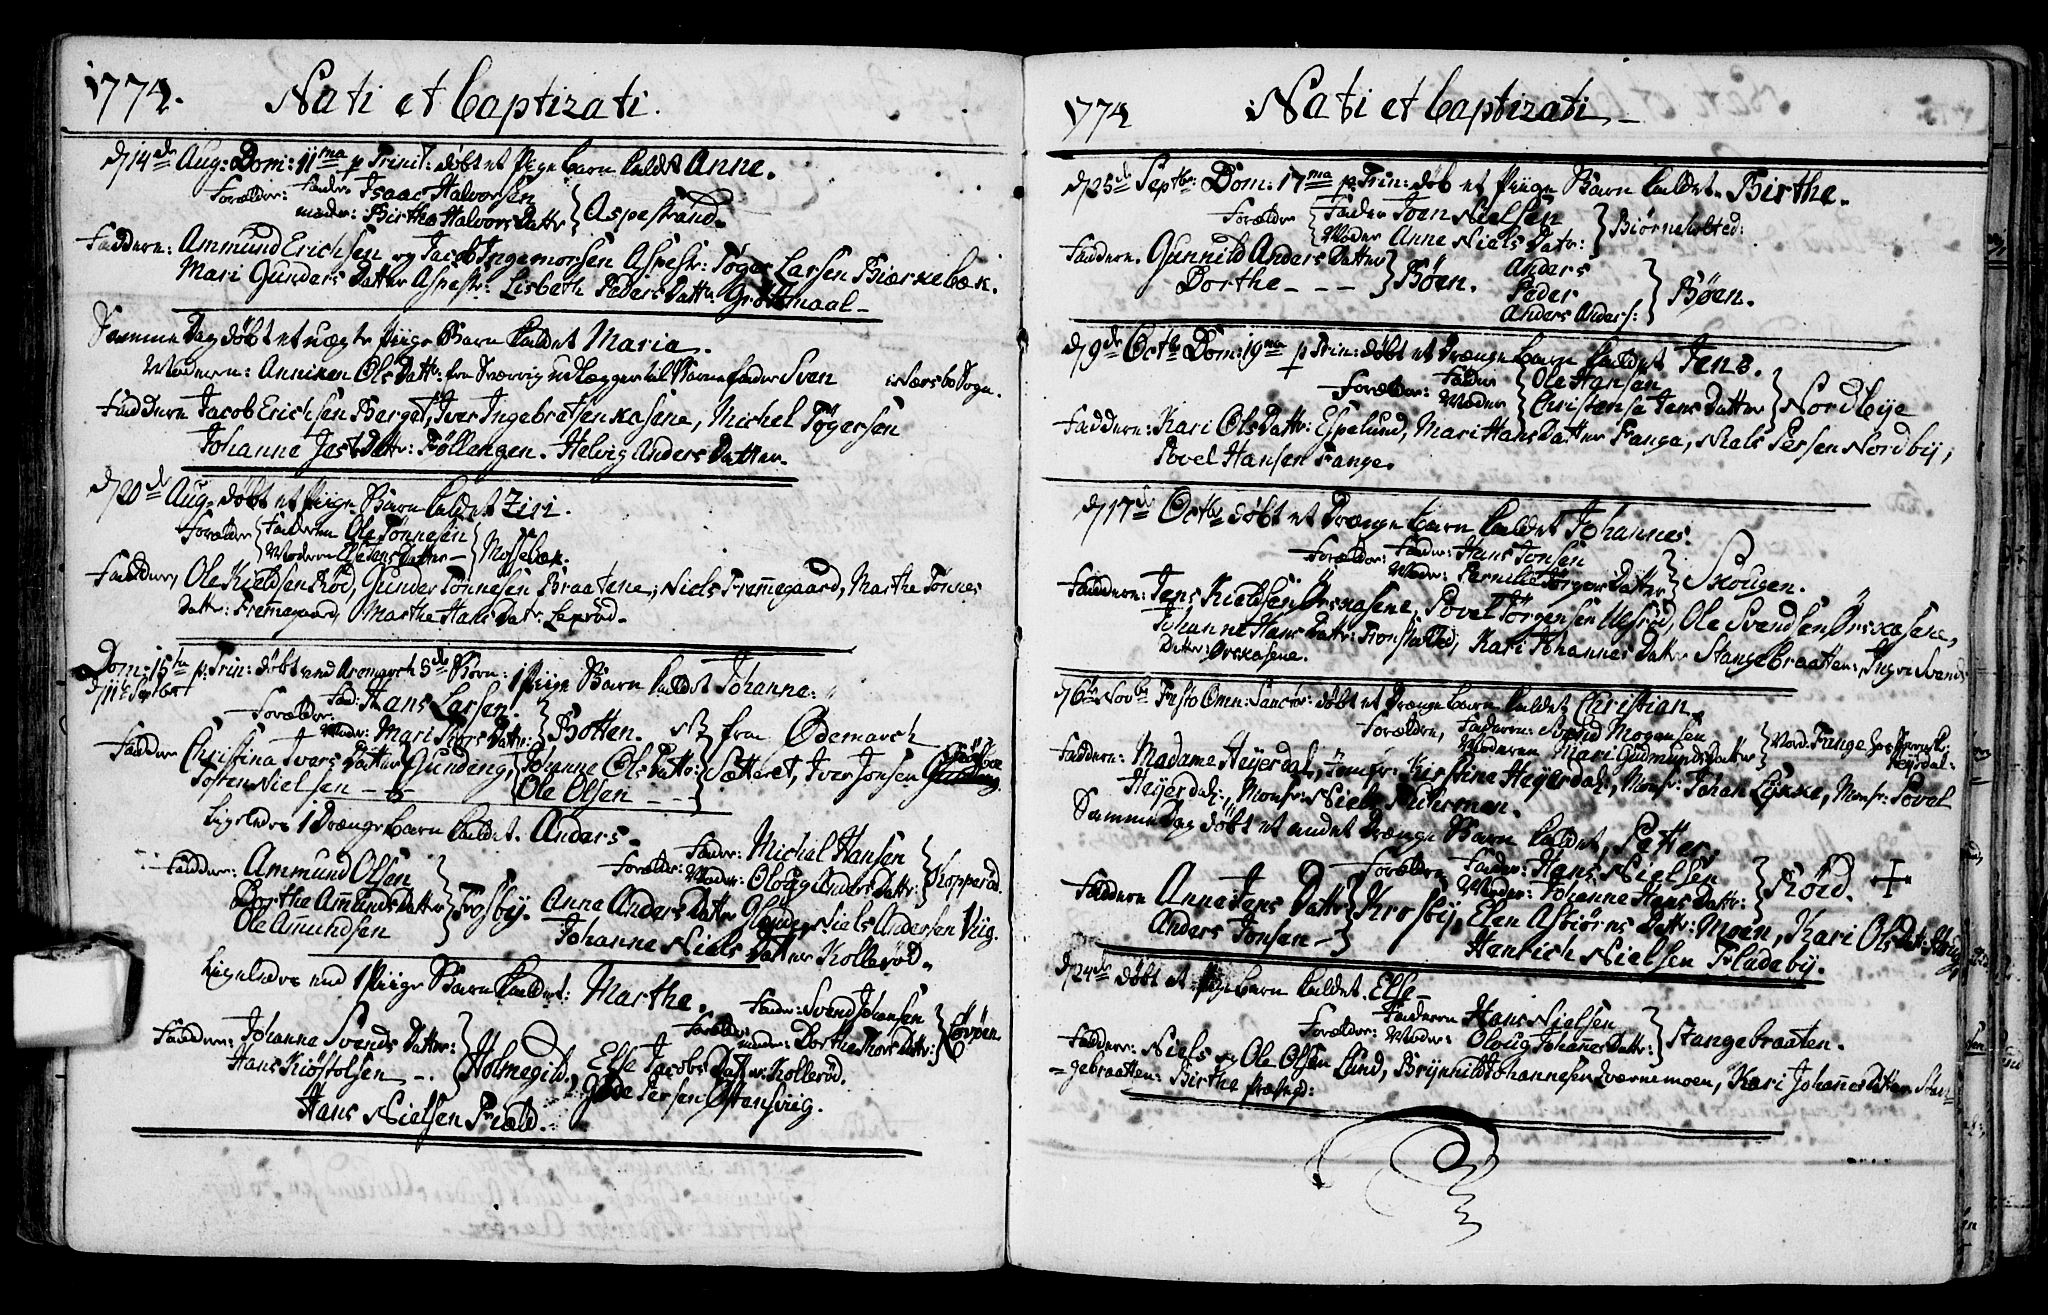 1774. Nati et baptizati.
d 14de Aug: Dom: 11ma p Trinit: døbt et Pige barn kaldet Anne.
Forælder: Fader: Isaac Halvorsen
moder: Birthe Halvors Dattr } Aspestrand.
Faddere: Ammund Erichsen og Jacob Ingemorsen Aspestr: Tøger Larsen Biørkebæk.
Mari Gunders Datter Aspestr: Lisbeth Peders Dattr
Samme Dag døbt et uægte Piige Barn kaldet Maria.
Moderen: Anniken Ols Dattr: fra udlægger til Barnefader Sven
Faddere Jacob Erichsen Berget, Iver Ingebretsen Kasene, Michel Tøgersen
Johanne Dattr: Føllengen. Helvig Anders Datter.
d 20de Aug: døbt et Piige Barn kaldet Ziri.
Forælder { Faderen Ole Tønnesen
Moderen Datter } Mossebæk.
Faddere, Ole Kieldsen Rød, Gunder Tønnesen Braatene, Niels Fremegaard, Marthe Tønnes
Datr: Fremegaard, Marthe Hans Datr Leprød.
Dom: 15ta p. Trin: døbt ved Aremarch 3de Børn: 1 Piige Barn kaldet Johanne:
d 11te Septbr
Forælder: Fad: Hans Larsen.
Moder: Mari Dattr: } Botten. fra Ødemarch
Fadder Christina Ivers Datter } Gundeng, { Johanne Ols Dattr: } Sætteret, Iver Jonsen
Nielsen { Ole Olsen
Ligeledes 1 Drænge barn kaldet. Anders.
Forælder: Fader: Michel Hansen
Moder: Oloug Anders Dattr: } Kopperød.
Faddere: Ammund Olsen
Dorthe Amunds Datter
Ole Amundsen } Fosby. Anne Anders Datter Niels Andersen Viig.
Johanne Niels Datter Kollerød.
Ligeledes end 1 Piige Barn kaldet: Marthe. Fader: Svend Johansen
Forælder: moder: Dorthe Thors Dattr:
Faddere: Johanne Svends Dattr:
Hans Kiøstolsen } Holmegild, Else Jacobs Datter Kollerød.
Persen Østensviig.
Hans Nielsen Præld.
1774 Nati et baptizati.
d 25de Septbr: Dom: 17ma p. Trin: døb et Piige Barn kaldet. Birthe.
Forælder { Fader Joen Nielsen
Moder Anne Niels Datr: } Biørneholsted:
Faddere. Gunnild Anders Datter
Dorthe - - - } Bøen. Anders
Peder
Anders Anders: } Bøen.
d 9de Octbr Dom: 19ma p Trin: døbt et Drænge barn kaldet Jens.
Forælder: Fader { Ole Hansen
Moder { Christense Jens Datter } Nordbye
Faddere: Kari Ols Dattr: Espelund, Mari Hans Datter Fange, Niels Persen Nordby,
Povel Hansen Fange.
d 17de Octbr døbt et Drænge barn kaldet Johannes.
Forælder: Fader: Hans Jonsen
Moder: Pernille Jørgens Datter } Skougen.
Faddere: Jens Kieldsen Ørskasene, Povel Jørgensen Ulsrød, Ole Svendsen Ørskasene,
Johanne Hans Dattr: Kari Johannes Datr Stangebraatten: Ingre Svends
Datter: Ørskasene.
d 6te Novbr Festo Omn: Sanctor: døbt et Drænge barn kaldet Christian.
Forældre, Faderen: Svend Mogensen
Moderen Mari Gudmunds Datter } Nord. Fange
Faddere: Madame Heyerdal, Jomfr: Kirstine Heyerdal:, Monsr: Johan Lykke, Monsr: Povel
Heyerdal:, Monsr: Niels
Samme Dag døbt et andet Drænge Barn kaldet, Petter.
Forældre Fader: Hans Nielsen
Moder: Johanne Hans Dattr: } Rød. +
Faddere Anne Jens Dattr
Anders Jonsen - } Krosby, Elen Asbiørns Dattr: Moen, Kari Ols Dattr:
Henrich Nielsen Fladeby.
d 24de døbt et Pige barn kaldet. Else
Forælder: Faderen Hans Nielsen
Moder: Oloug Johannes Dattr: } Stangebraaten.
Faddere: Niels og Ole Olsen Lund, Brynhild Johannesen Kværnemoen, Kari Johannes Datter Stan=
=gebraatten: Birthe